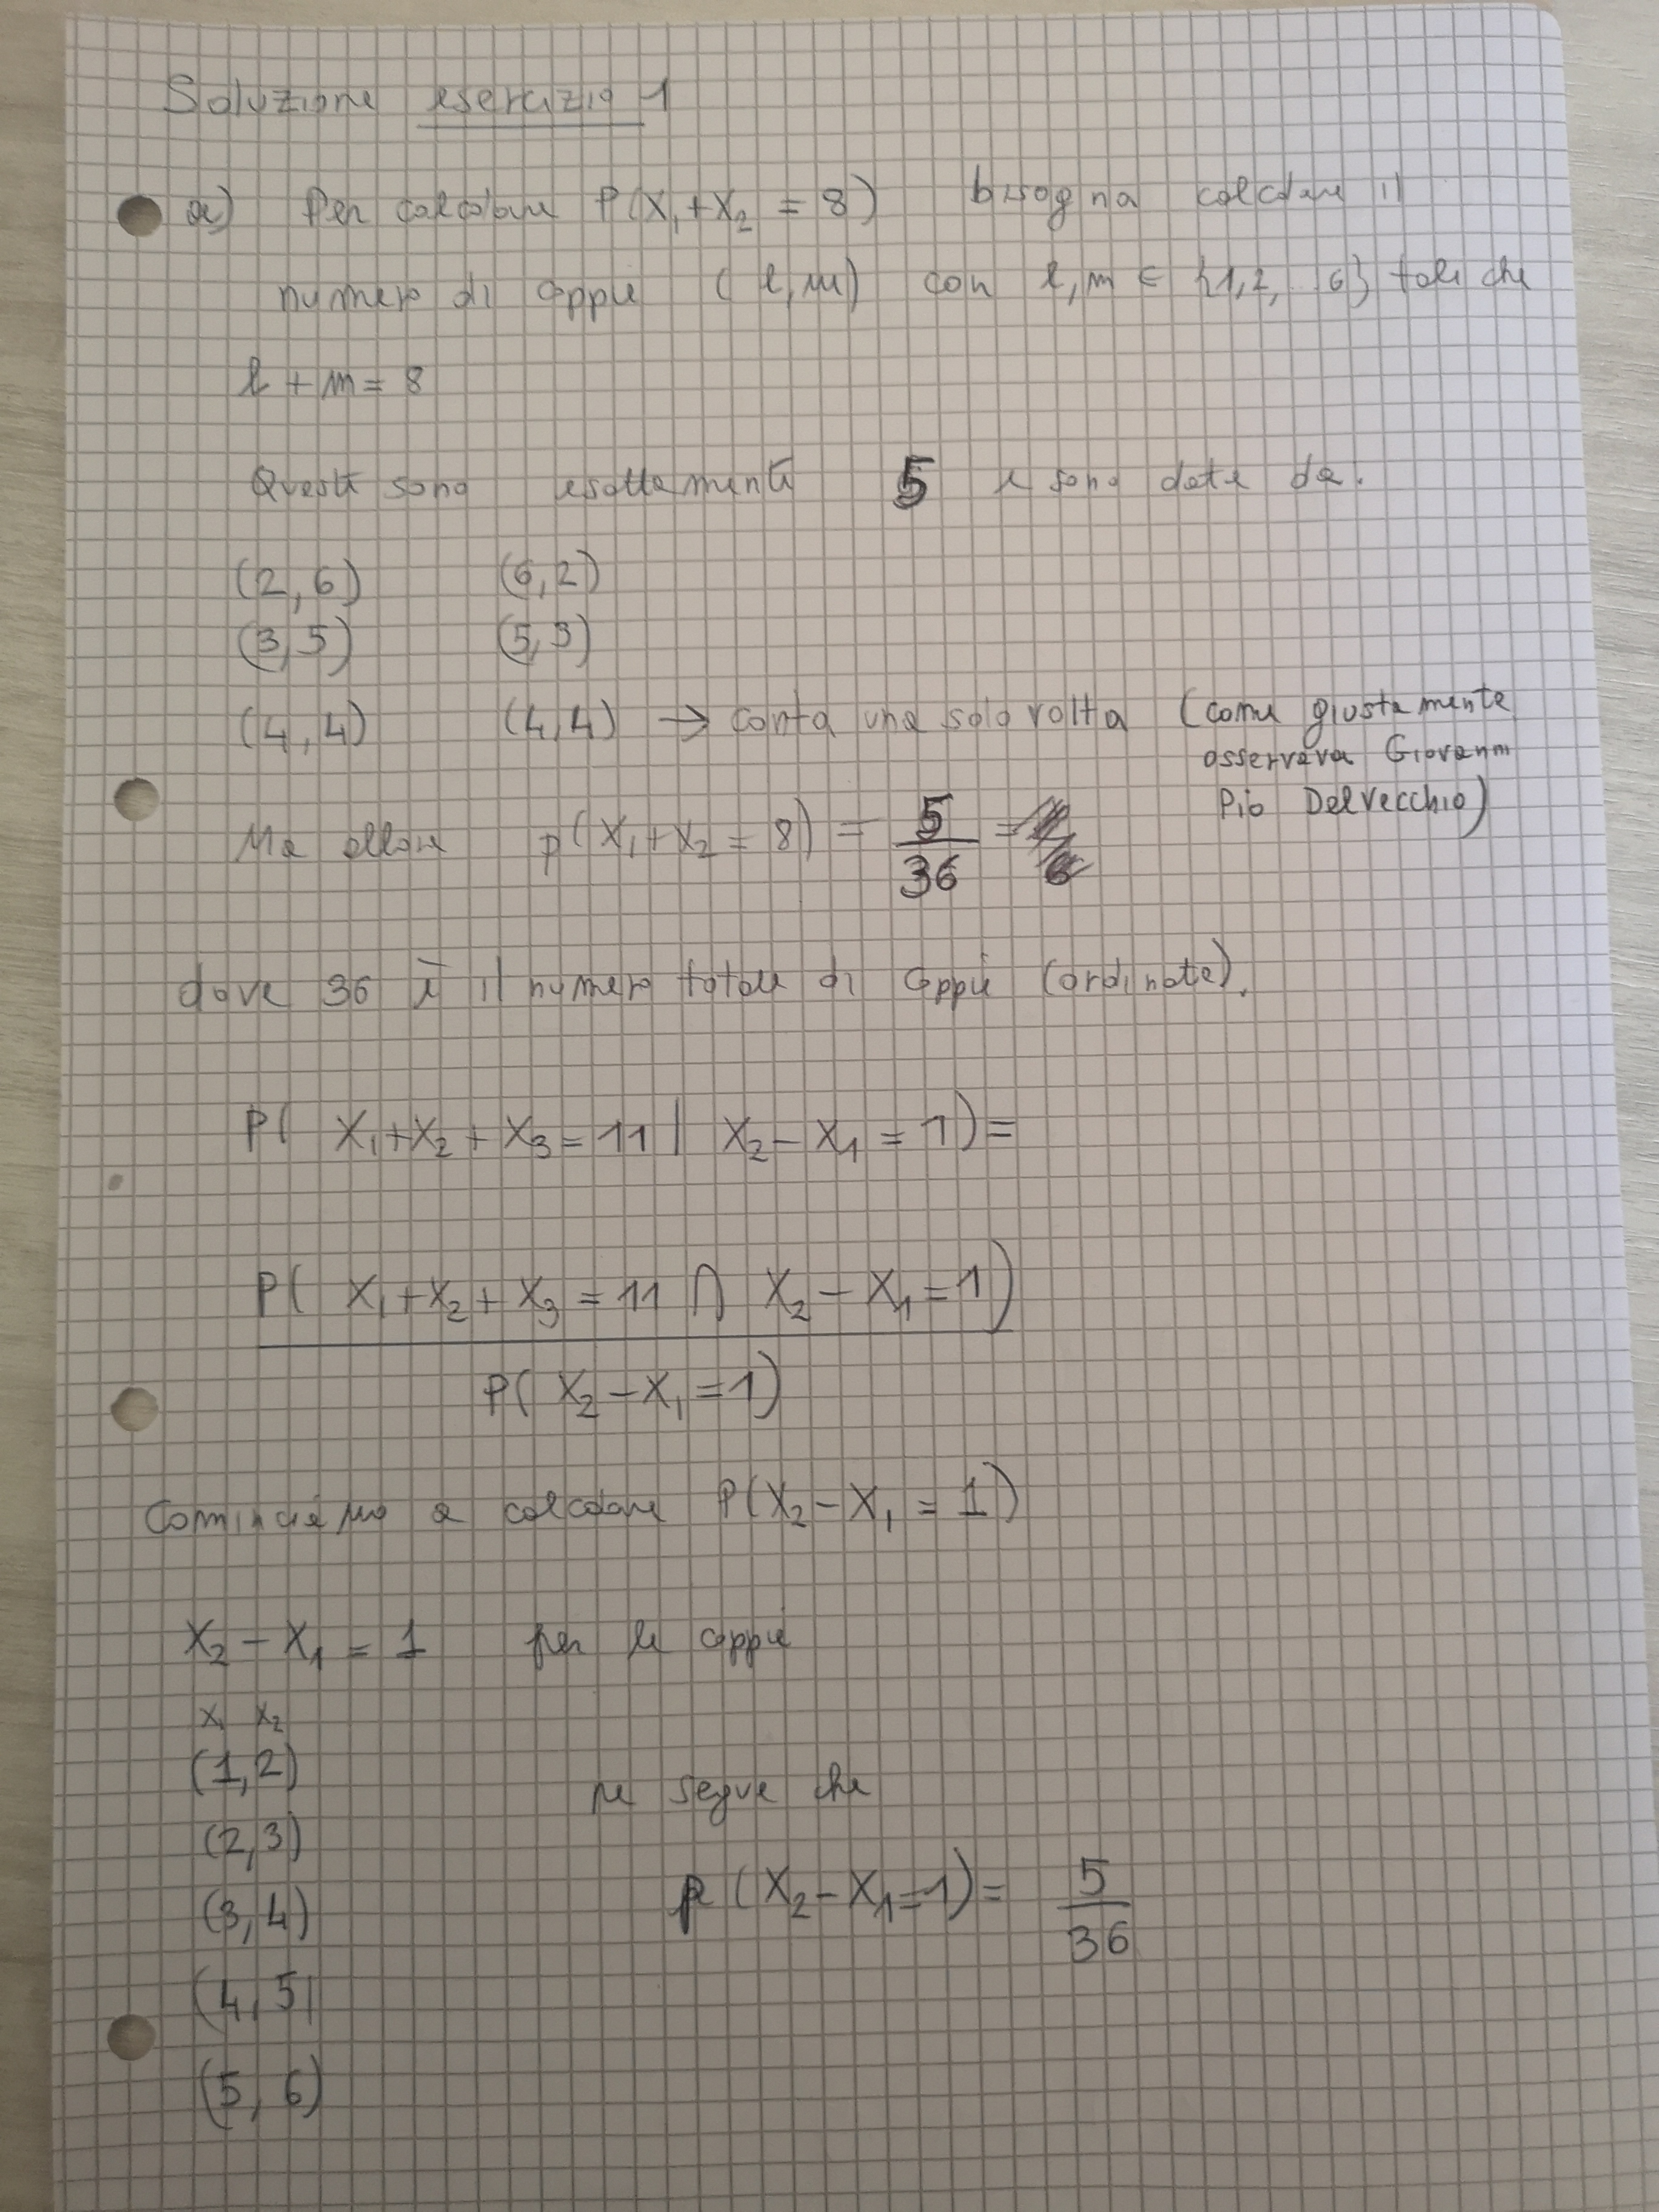 Soluzione esercizio 1
a) Per calcolare P(X₁+X₂ = 8) bisogna calcolare il
numero di coppie (l,m) con l,m ∈ {1,2,..6} tali che
l + m = 8
Queste sono esattamente 5 e sono date da.
(2,6) (6,2)
(3,5) (5,3)
(4,4) (4,4) → conta una sola volta (come giustamente
osservava Giovanni
Pio Delvecchio)
Ma allora p(X₁+X₂ = 8) = 5/36 =
dove 36 è il numero totale di coppie (ordinate).
P( X₁+X₂+X₃ = 11 | X₂-X₁ = 1) =
P( X₁+X₂+X₃ = 11 ∩ X₂-X₁ = 1)
P( X₂-X₁ = 1)
Cominciamo a calcolare P(X₂-X₁ = 1)
X₂-X₁ = 1 per le coppie
X₁ X₂
(1,2)
ne segue che
(2,3)
(3,4) p(X₂-X₁=1) = 5/36
(4,5)
(5,6)